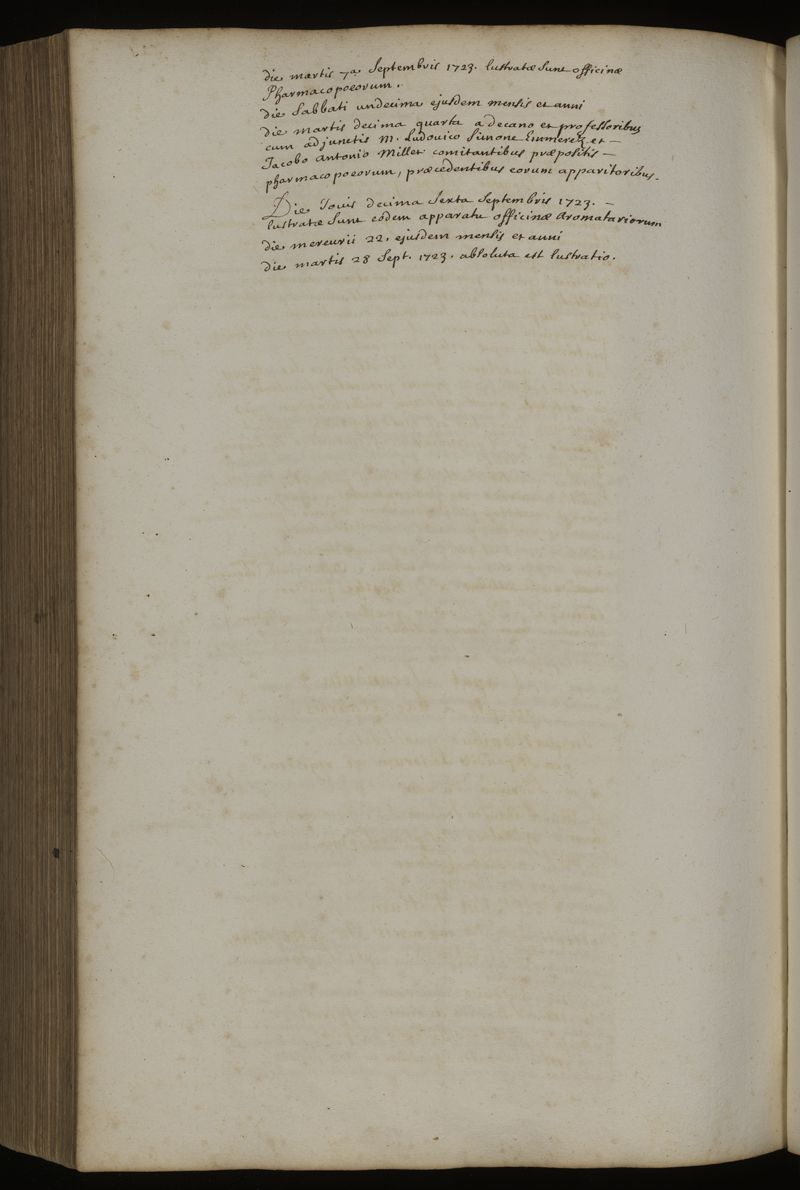 die martis 7a Septembris 1723. lustratæ sunt officinæ
Pharmacopoeorum.
die Sabbati undecima ejusdem mensis et anni
die martis decima quarta a decano et professoribus
cum adjunctis M. Ludovico Simone Emmerez et —
Jacobo Antonio Millet comitantibus præpositis —
pharmacopoeorum, præcedentibus eorum apparitoribus.
Die Jovis decima sexta septembris 1723. —
lustratæ sunt eodem apparatu officinæ Aromatariorum
die mercurii 22. ejusdem mensis et anni
die martis 28 Sept. 1723. absoluta est lustratio.